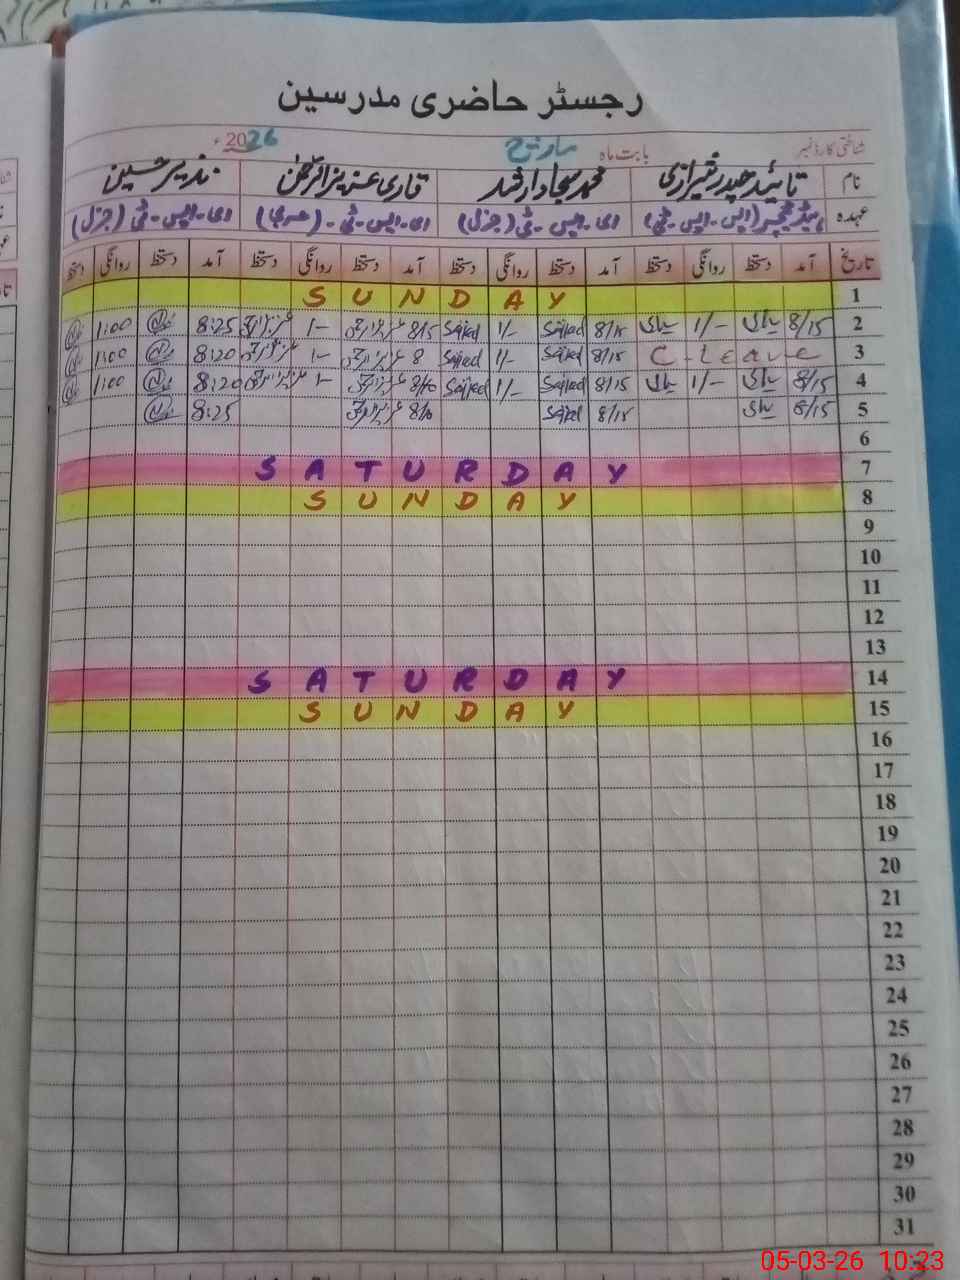 رجسٹر حاضری مدرسین
شناختی کارڈ نمبر بابت ماہ مارچ 2026ء
نام تائید حیدر شیرازی محمد سجاد ارشد قاری عزیز الرحمٰن نذیر حسین
عہدہ ہیڈ ٹیچر (ایس۔ایس۔ٹی) ای۔ایس۔ٹی (جنرل) ای۔ایس۔ٹی۔(عربی) ای۔ایس۔ٹی (جنرل)
تاریخ آمد دستخط روانگی دستخط آمد دستخط روانگی دستخط آمد دستخط روانگی دستخط آمد دستخط روانگی دستخط
1 SUNDAY
2 8/15 1/- 8/15 Sajjad 1/- Sajjad 8/15 1- 8:25 1:00
3 C-Leave 8/15 Sajjad 1/- Sajjad 8 1- 8:20 1:00
4 8/15 1/- 8/15 Sajjad 1/- Sajjad 8/10 1- 8:20 1:00
5 8/15 8/15 Sajjad 8/10 8:25
6
7 SATURDAY
8 SUNDAY
9
10
11
12
13
14 SATURDAY
15 SUNDAY
16
17
18
19
20
21
22
23
24
25
26
27
28
29
30
31
05-03-26 10:23